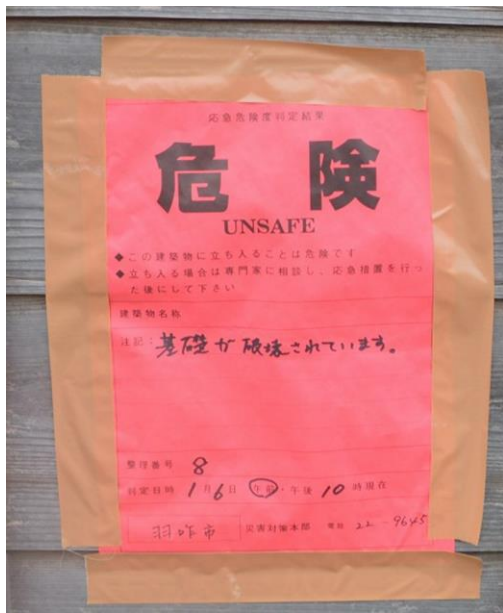 応急危険度判定結果
危険
UNSAFE
◆この建築物に立ち入ることは危険です
◆立ち入る場合は専門家に相談し、応急措置を行っ
た後にして下さい
建築物名称
注記：基礎が破壊されています。
整理番号 8
判定日時 1月6日 午前・午後 10時現在
羽咋市 災害対策本部 電話 22-9645